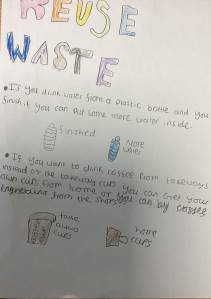 REUSE
WASTE
• If you drink water from a plastic bottle and you
finish it you can put some more water inside.
finished
more
water
• If you want to drink coffee from takeaways
instead of the takeaway cups you can
own cups from home or you can by coffee
from the shops
take
away
cups
home
cups